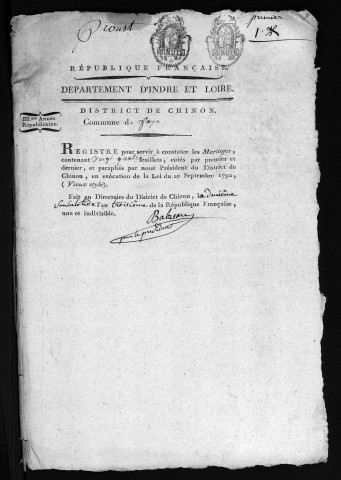 Proust
premier
RÉPUBLIQUE FRANÇAISE.
DÉPARTEMENT D'INDRE ET LOIRE.
DISTRICT DE CHINON.
IIIme Année
Républicaine.
Commune de faye
REGISTRE pour servir à constater les Mariages,
contenant vingt quatre feuillets, cotés par premier et
dernier, et paraphés par nous Président du District de
Chinon, en exécution de la Loi du 20 Septembre 1792,
(Vieux style).
Fait au Directoire du District de Chinon, la deuxième
Sanculotide l'an troisième de la République Française,
une et indivisible.